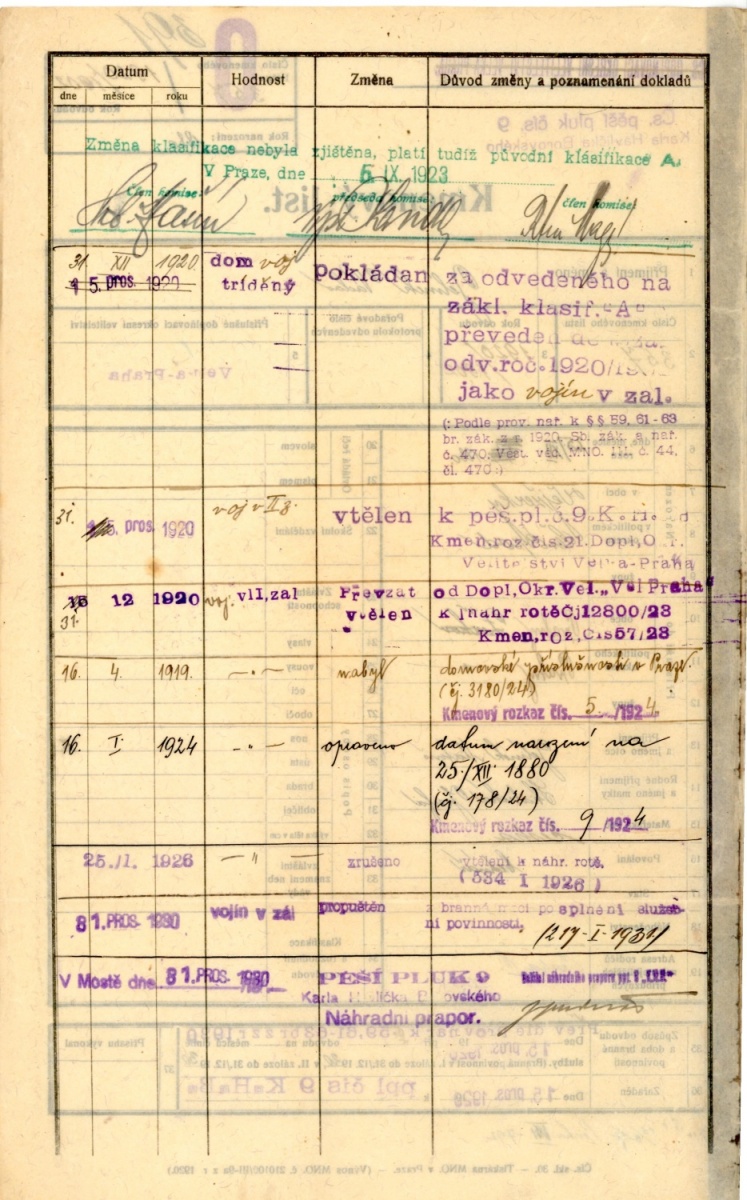 Datum
Hodnost
Změna
Důvod změny a poznamenání dokladů
dne
měsíce
roku
Změna klasifikace nebyla zjištěna, platí tudíž původní klasifikace A.
V Praze, dne 5 IX. 1923
člen komise:
předseda komise:
člen komise:
31. XII 1920
15. pros. 1920
dom voj
tříděný
pokládan
za odvedeného na
zákl. klasif. "A"
převeden do
odv. roč. 1920/19
jako vojín v zal.
(: Podle prov. nař. k §§ 59, 61-63
br. zák. z r. 1920. Sb. zák. a nař.
č. 470; Věst. věc. MNO. č. 44,
čl. 470:)
31.
15. pros. 1920
voj v II z.
vtělen
k pěš. pl. č. 9. K. H.
Kmen. roz čís. 21. Dopl. O.
Velitelství Velká-Praha"
15 12 1920
31.
voj. v II, zal
Převzat
vtělen
od Dopl, Okr. Vel. „Vel Praha"
k náhr rotě čj 12800/23
Kmen, roz, čís 57/23
16. 4. 1919.
— " —
nabyl
domovské příslušnosti v Praze.
(čj. 3180/24)
Kmenový rozkaz čís. 5. /1924
16. I. 1924
— " —
opraveno
datum narození na
25./XII. 1880
(čj. 178/24)
Kmenový rozkaz čís. 9 /1924
25./I. 1926
— " —
zrušeno
vtělení k náhr. rotě.
(534 I 1926)
31. PROS. 1930
vojín v zál
propuštěn
z branné moci po splnění služeb-
ní povinnosti,
(217-I-1931)
V Mostě dne 31. PROS. 1930
PĚŠÍ PLUK 9
Karla Havlíčka Borovského
Náhradní prapor.